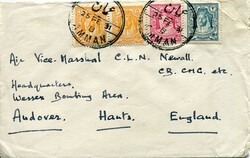 عمان
25 FE 31
AMMAN
عمان
25 FE 31
AMMAN
Air Vice-Marshal C.L.N. Newall.
CB. CMG. etc.
Headquarters,
Wessex Bombing Area,
Andover, Hants, England.